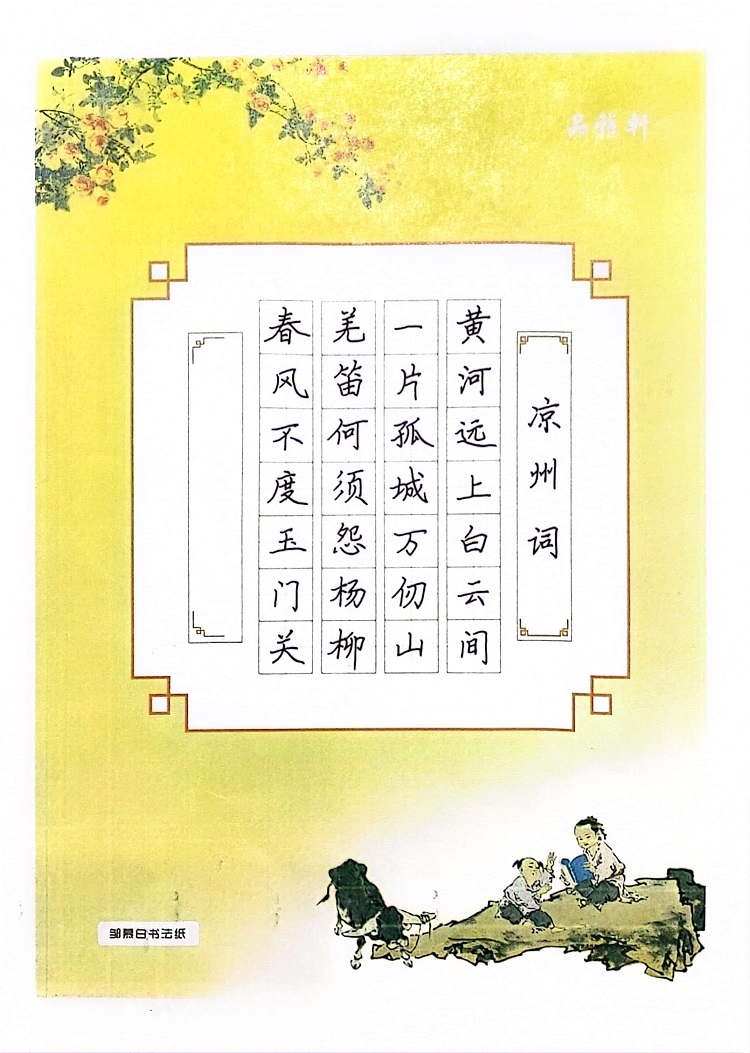 品雅轩
凉州词
黄河远上白云间
一片孤城万仞山
羌笛何须怨杨柳
春风不度玉门关